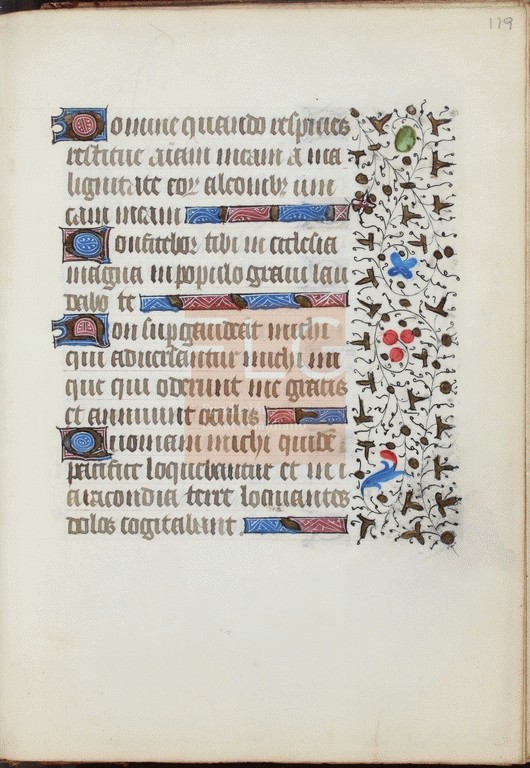 119
Domine quando respicies
restitue aīam meam a ma
lignitate eoꝝ a leonibꝫ uni
cam meam
Confitebor tibi in ecclesia
magna in populo graui lau
dabo te
Non supgaudeāt michi
qui aduersantur michi ini
que qui oderunt me gratis
et annuunt oculis
Quoniam michi quidē
pacifice loquebantur et in i
racondia terre loquantes
dolos cogitabunt